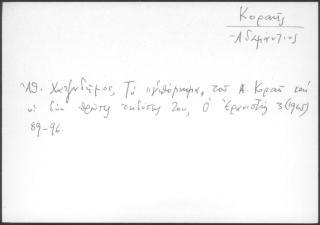 Κοραῆς
Ἀδαμάντιος
Ἀθ. Χατζηδῆμος, Τὸ ὑπόμνημα τοῦ Α. Κοραῆ καὶ
οἱ δύο πρῶτες ἐκδόσεις του, Ὁ Ἐρανιστής 3 (1965)
89-96.